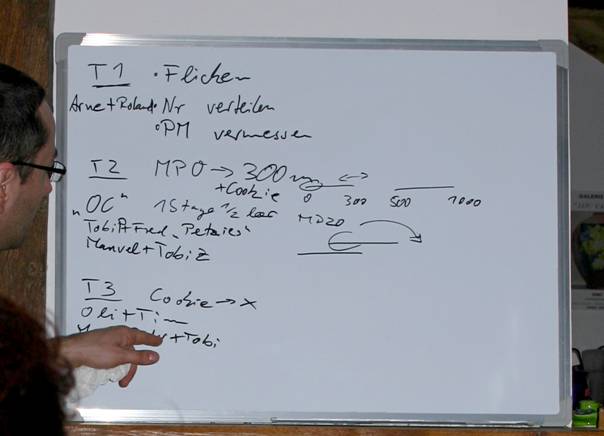 T1 • Flicken
Arne+Roland • Nr verteilen
• PM vermessen
T2 MPO → 300m
+Cookie
0 300 500 1000
"OC" 1 Stage 1/2 leer
MD20
TobiA+Fred "Petzies"
Manuel+TobiZ
T3 Cookie → x
Oli+Tim
+Tobi
GALERIE